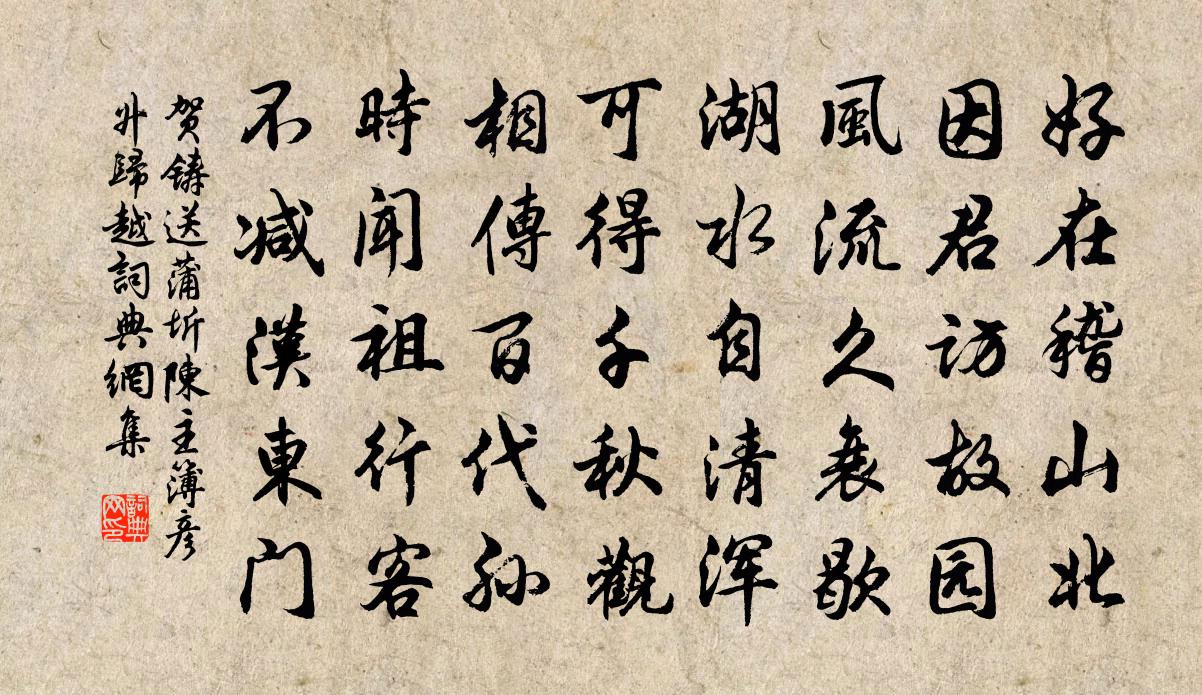 好在稽山北
因君访故园
風流久衰歇
湖水自清浑
可得千秋觀
相傳百代孙
時闻祖行客
不减漢東门
贺鑄送蒲圻陳主簿彦
升歸越詞典網集
詞典网印